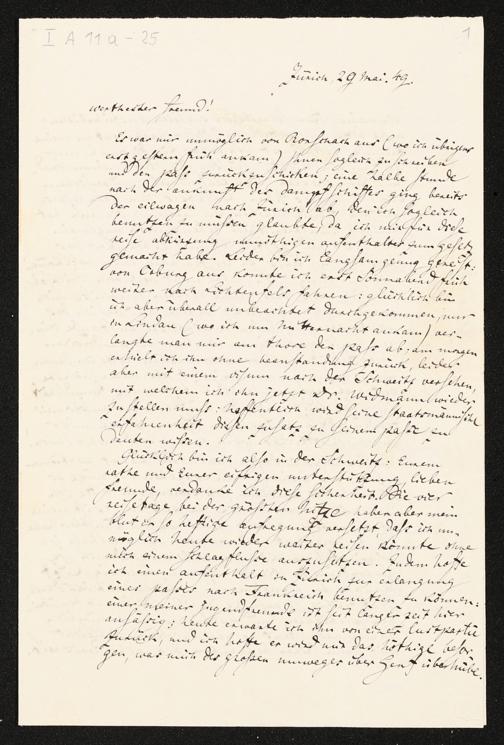 I A 11 a - 25
1
Zürich, 29 Mai. 49.
werthester Freund!
Es war mir unmöglich von Rorschach aus (wo ich übrigens
erst gestern früh ankam) Ihnen sogleich zu schreiben
und den pass zurückzuschicken; eine halbe stunde
nach der ankunft des dampfschiffes ging bereits
der eilwagen nach Zürich ab, den ich sogleich
benutzen zu müssen glaubte, da ich mir für diese
reise abkürzung unnöthigen aufenthaltes zum gesetz
gemacht habe. Leider bin ich langsam genug gereist:
von Coburg aus konnte ich erst Sonnabend früh
weiter nach Lichtenfels fahren: glücklich bin
ich aber überall unbeachtet durchgekommen, nur
in Lindau (wo ich um Mitternacht ankam) ver-
langte man mir am thore den pass ab: am morgen
erhielt ich ihn ohne beanstandung zurück, leider
aber mit einem visum nach der Schweitz versehen,
mit welchem ich ihn jetzt Dr. Widmann wieder
zustellen muss: hoffentlich wird seine staatsmännische
erfahrenheit diesen zusatz zu seinem passe zu
deuten wissen.
Glücklich bin ich also in der Schweitz: Eurem
rathe und Eurer eifrigen unterstützung, lieben
freunde, verdanke ich diese sicherheit. Die vier
reisetage, bei der größten hitze haben aber mein
blut in so heftige aufregung versetzt, daß ich un-
möglich heute wieder weiter reisen könnte ohne
mich einem schlagflusse auszusetzen. Zudem hoffe
ich einen aufenthalt in Zürich zur erlangung
eines passes nach Frankreich benutzen zu können:
einer meiner Jugendfreunde ist seit länger zeit hier
ansässig; heute erwarte ich ihn von einer lustpartie
zurück, und ich hoffe er wird mir das nöthige besor-
gen, was mich des großen umweges über Genf überhübe.